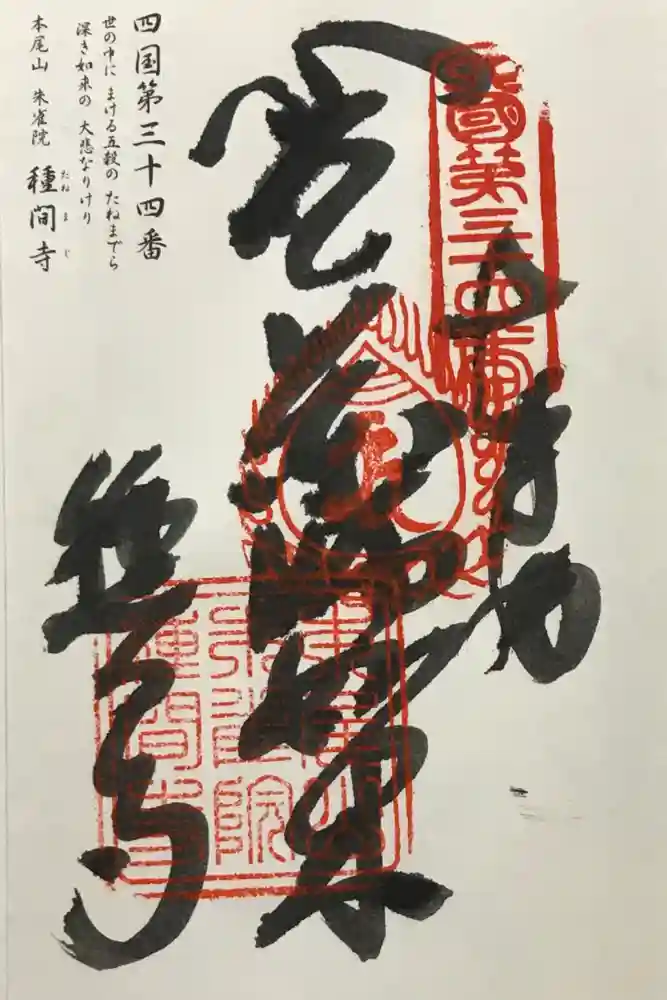 四国第三十四番
世の中に まける五穀の たねまでら
深き如来の 大悲なりけり
本尾山 朱雀院 種間寺
たねまじ
四國第三十四番
奉拝
薬師如来
種間寺
本尾山
朱雀院
種間寺